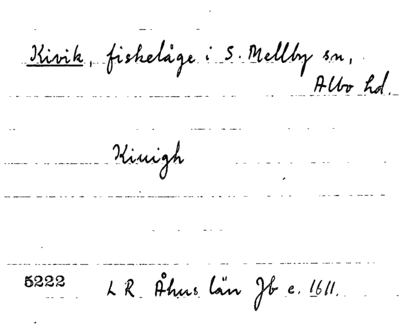 Kivik, fiskeläge i S. Mellby sn,
Albo hd.
Kiuigh
5222 LR Åhus län Jb c. 1611.